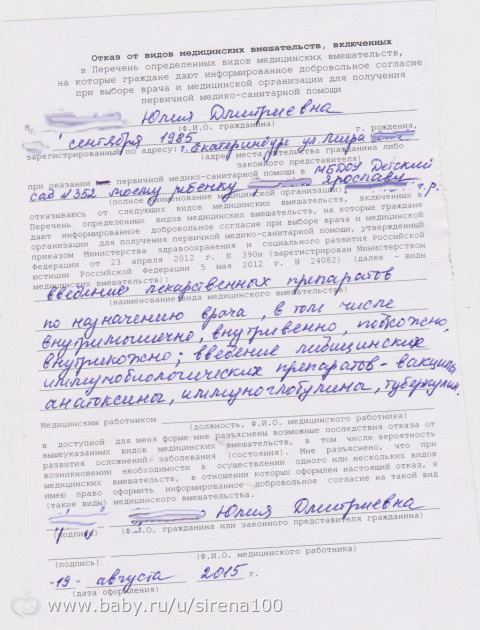 Отказ от видов медицинских вмешательств, включенных
в Перечень определенных видов медицинских вмешательств,
на которые граждане дают информированное добровольное согласие
при выборе врача и медицинской организации для получения
первичной медико-санитарной помощи
Я, Юлия Дмитриевна
(Ф.И.О. гражданина)
сентября 1985 г. рождения,
зарегистрированный по адресу: г. Екатеринбург ул. Мира
(адрес места жительства гражданина либо
законного представителя)
при оказании первичной медико-санитарной помощи в МБДОУ Детский
сад №352 моему ребёнку Ярославу г.р.
(полное наименование медицинской организации)
отказываюсь от следующих видов медицинских вмешательств, включенных в
Перечень определенных видов медицинских вмешательств, на которые граждане
дают информированное добровольное согласие при выборе врача и медицинской
организации для получения первичной медико-санитарной помощи, утвержденный
приказом Министерства здравоохранения и социального развития Российской
Федерации от 23 апреля 2012 г. N 390н (зарегистрирован Министерством
юстиции Российской Федерации 5 мая 2012 г. N 24082) (далее - виды
медицинских вмешательств):
введение лекарственных препаратов
(наименование вида медицинского вмешательства)
по назначению врача, в том числе
внутримышечно, внутривенно, подкожно,
внутрикожно; введение медицинских
иммунобиологических препаратов - вакцины,
анатоксины, иммуноглобулины, туберкулин.
Медицинским работником
(должность, Ф.И.О. медицинского работника)
в доступной для меня форме мне разъяснены возможные последствия отказа от
вышеуказанных видов медицинских вмешательств, в том числе вероятность
развития осложнений заболевания (состояния). Мне разъяснено, что при
возникновении необходимости в осуществлении одного или нескольких видов
медицинских вмешательств, в отношении которых оформлен настоящий отказ, я
имею право оформить информированное добровольное согласие на такой вид
(такие виды) медицинского вмешательства.
Юлия Дмитриевна
(подпись) (Ф.И.О. гражданина или законного представителя гражданина)
(подпись) (Ф.И.О. медицинского работника)
"19" августа 2015 г.
(дата оформления)
www.baby.ru/u/sirena100